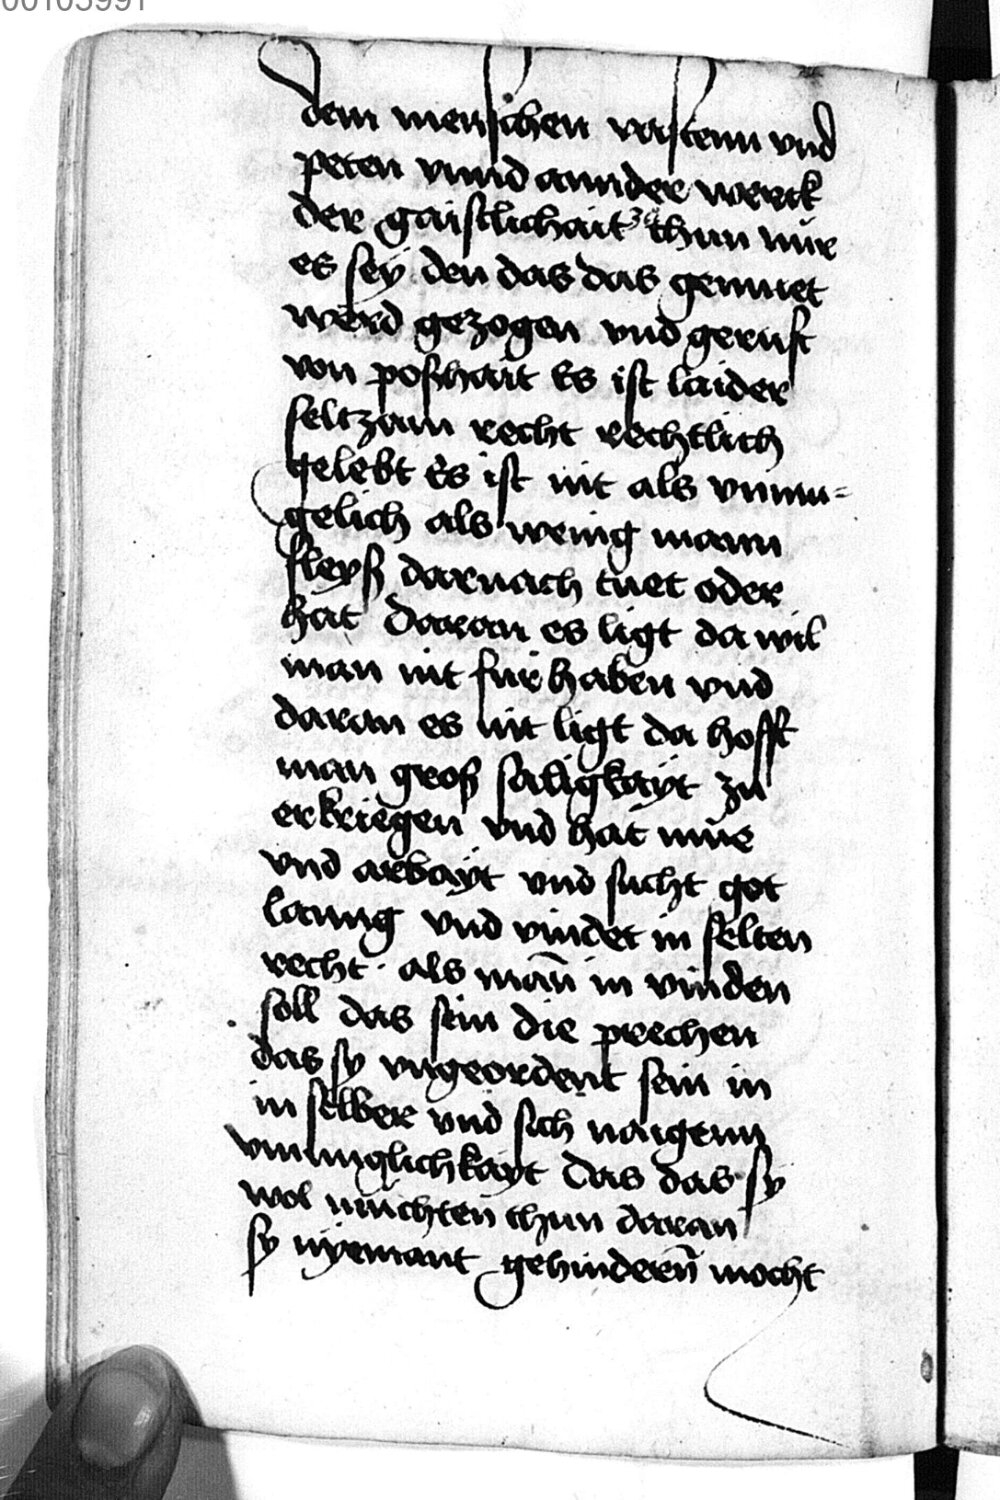 00103991
dem menschen vastenn vnd
peten vnnd annder werck
der gaistlichait thun mir
es sey den das das gemuet
werd gezogen vnd gerust
von poszhait Es ist laider
seltzam recht rechtlich
gelebt Es ist nit als vnmu=
gelich als wenig mann
fleysz darnach tuet oder
hat daran es ligt da wil
man nit fur haben vnd
daran es nit ligt da hofft
man grosz saligkayt zu
erkriegen vnd hat mue
vnd arbayt vnd sucht got
lanng vnd vindet in selten
recht als man̄ in vinden
soll das sein die prechen
das sy vngeordent sein in
in selber vnd sich naigenn
das das sy
wol mūchten thun daran
sy nyemant gehinderen̄ mocht